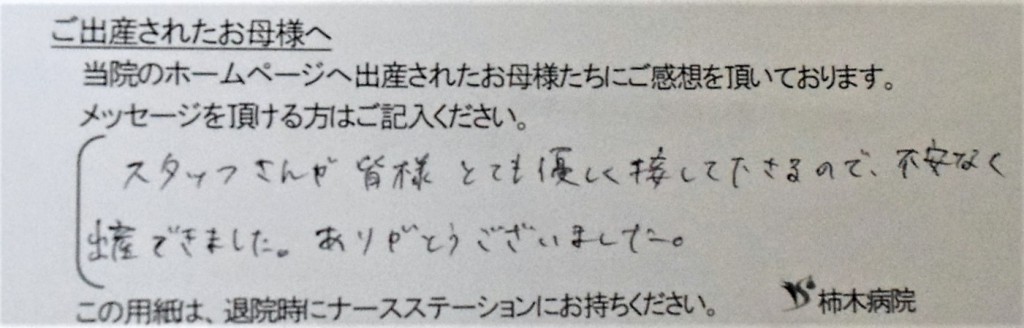 ご出産されたお母様へ
当院のホームページへ出産されたお母様たちにご感想を頂いております。
メッセージを頂ける方はご記入ください。
スタッフさんが皆様とても優しく接して下さるので、不安なく
出産できました。ありがとうございました。
この用紙は、退院時にナースステーションにお持ちください。
柿木病院